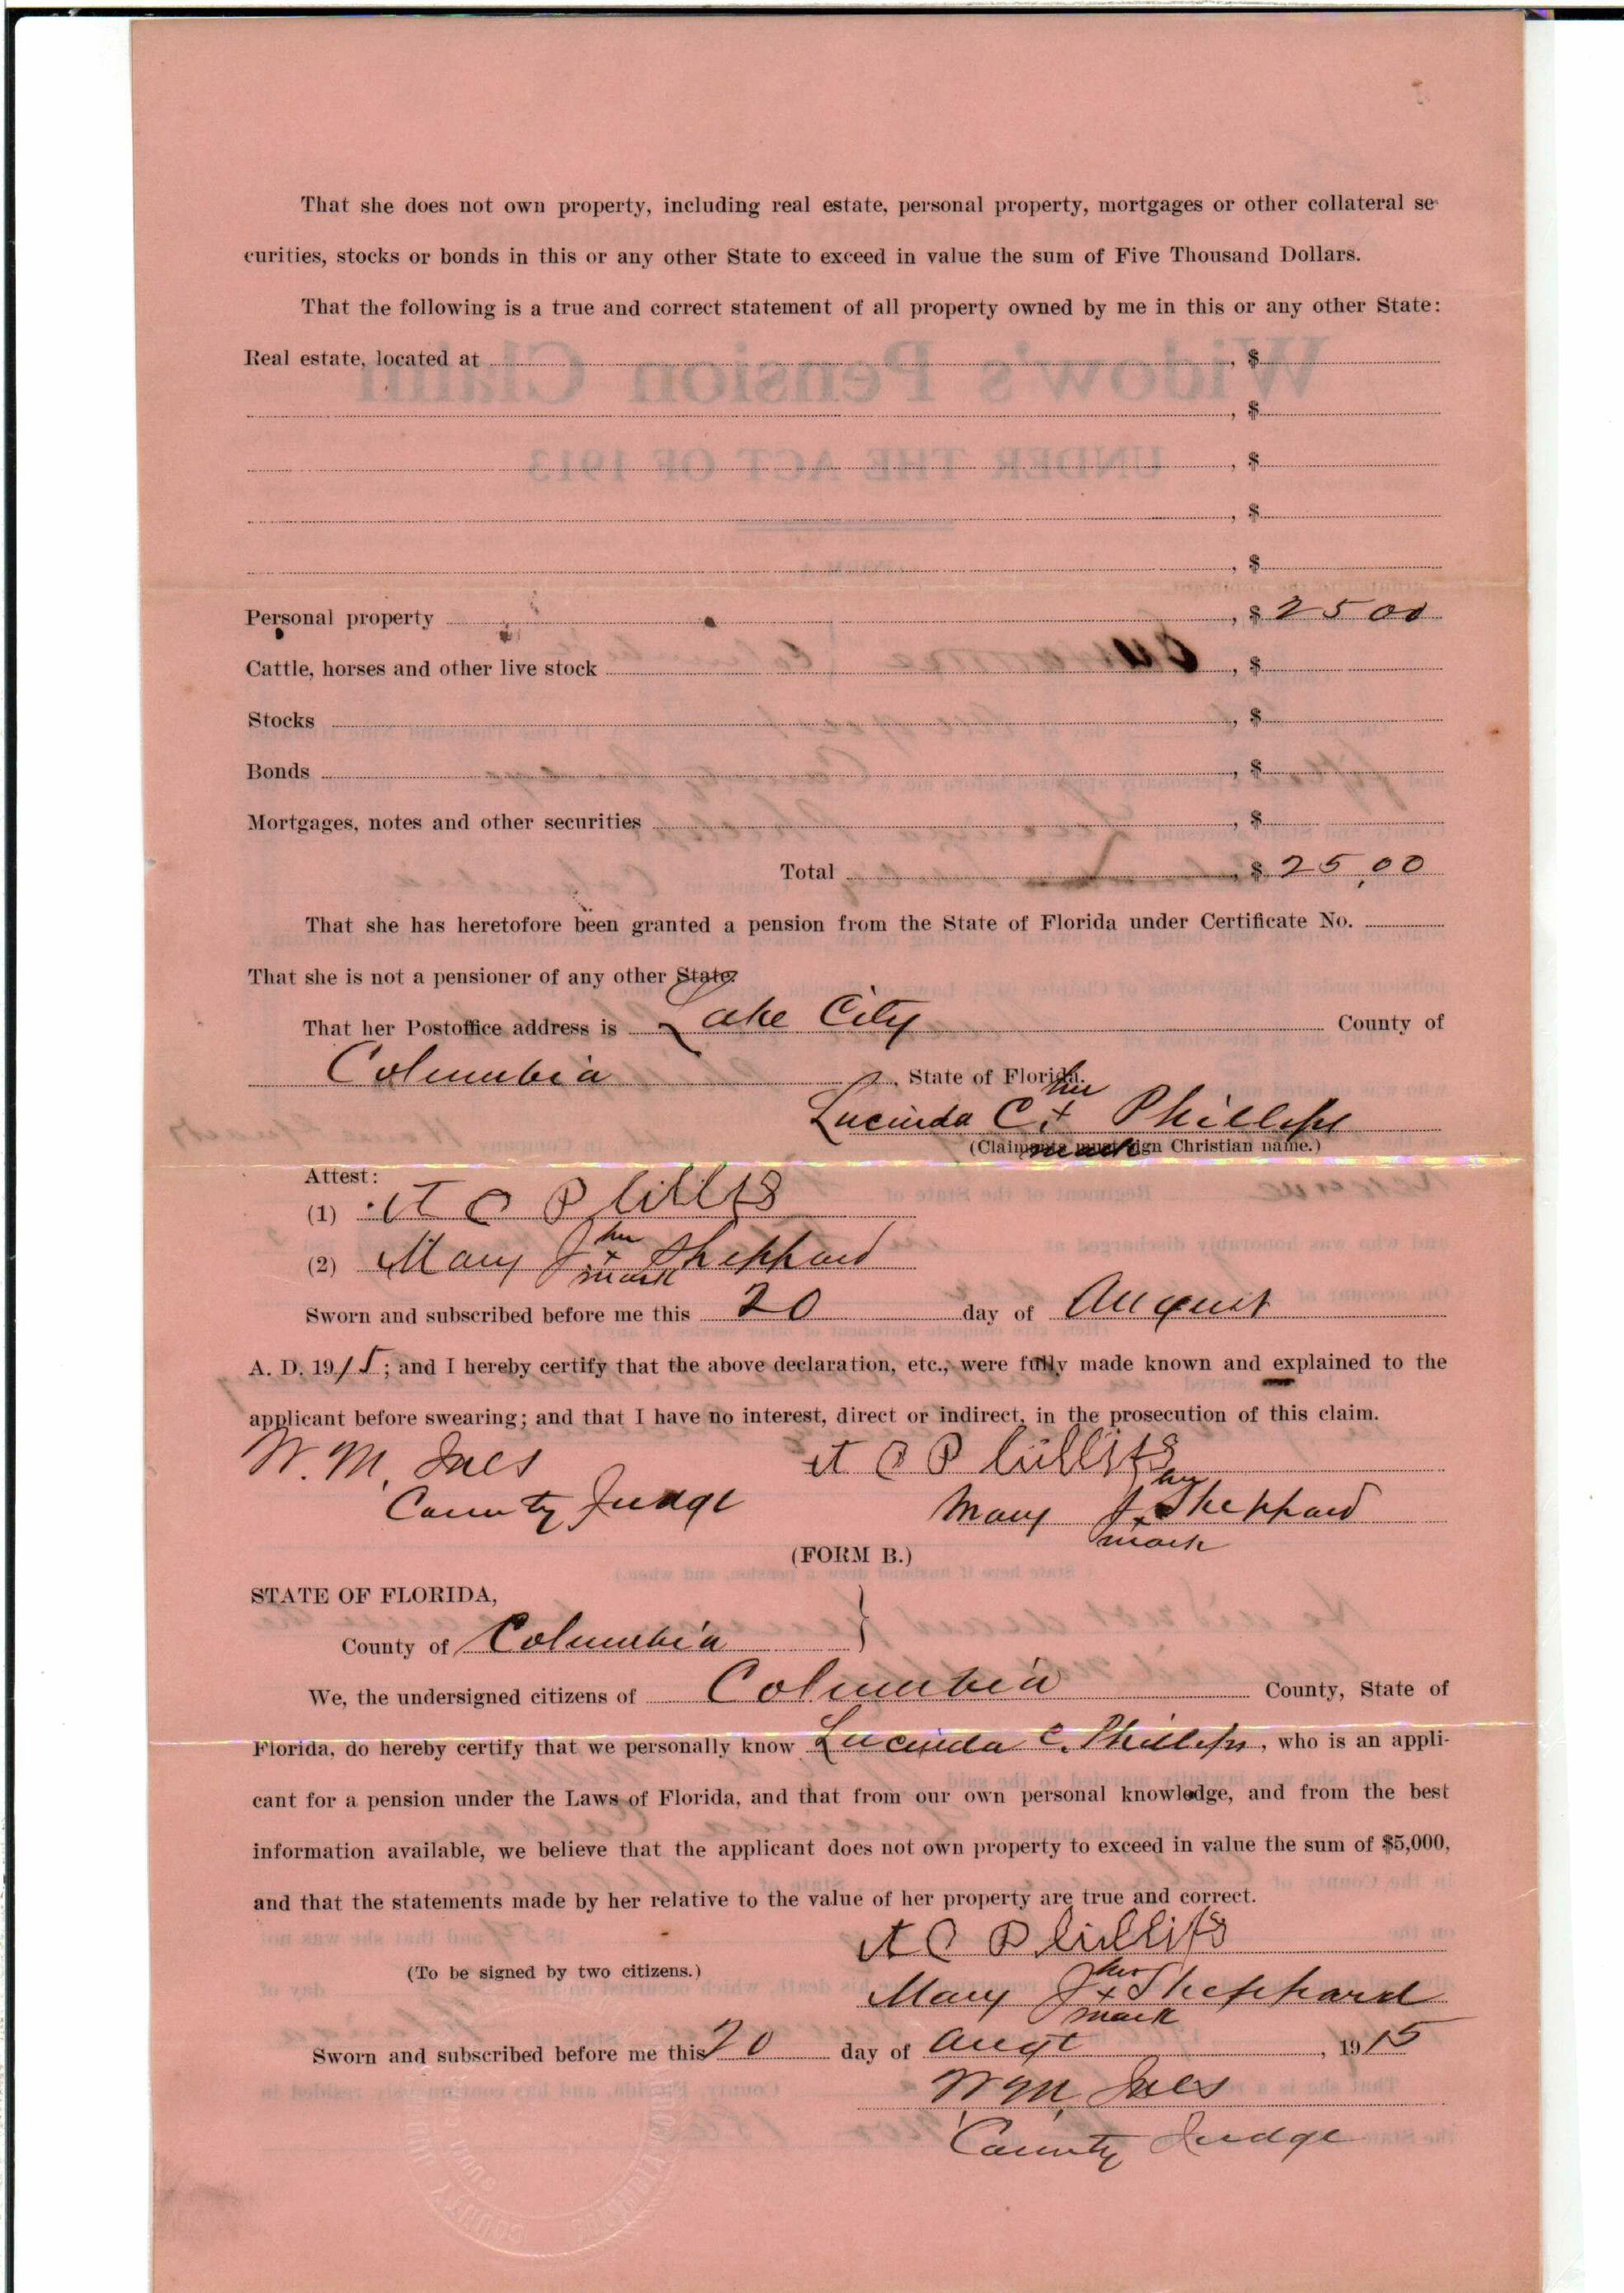 That she does not own property, including real estate, personal property, mortgages or other collateral se-
curities, stocks or bonds in this or any other State to exceed in value the sum of Five Thousand Dollars.
That the following is a true and correct statement of all property owned by me in this or any other State:
Real estate, located at , $
, $
, $
, $
, $
Personal property , $ 25 00
Cattle, horses and other live stock , $
Stocks , $
Bonds , $
Mortgages, notes and other securities , $
Total , $ 25,00
That she has heretofore been granted a pension from the State of Florida under Certificate No.
That she is not a pensioner of any other State.
That her Postoffice address is Lake City County of
Columbia , State of Florida.
her
Lucinda C. + Phillips
mark
(Claimants must sign Christian name.)
Attest:
(1) A C Phillips
her
(2) Mary J + Sheppard
mark
Sworn and subscribed before me this 20 day of August
A. D. 1915; and I hereby certify that the above declaration, etc., were fully made known and explained to the
applicant before swearing; and that I have no interest, direct or indirect, in the prosecution of this claim.
W. M. Ives A C Phillips
her
County Judge Mary J. x Sheppard
mark
(FORM B.)
STATE OF FLORIDA,
County of Columbia }
We, the undersigned citizens of Columbia County, State of
Florida, do hereby certify that we personally know Lucinda C. Phillips, who is an appli-
cant for a pension under the Laws of Florida, and that from our own personal knowledge, and from the best
information available, we believe that the applicant does not own property to exceed in value the sum of $5,000,
and that the statements made by her relative to the value of her property are true and correct.
A C Phillips
(To be signed by two citizens.)
her
Mary J + Sheppard
mark
Sworn and subscribed before me this 20 day of Augt , 1915
W. M. Ives
County Judge